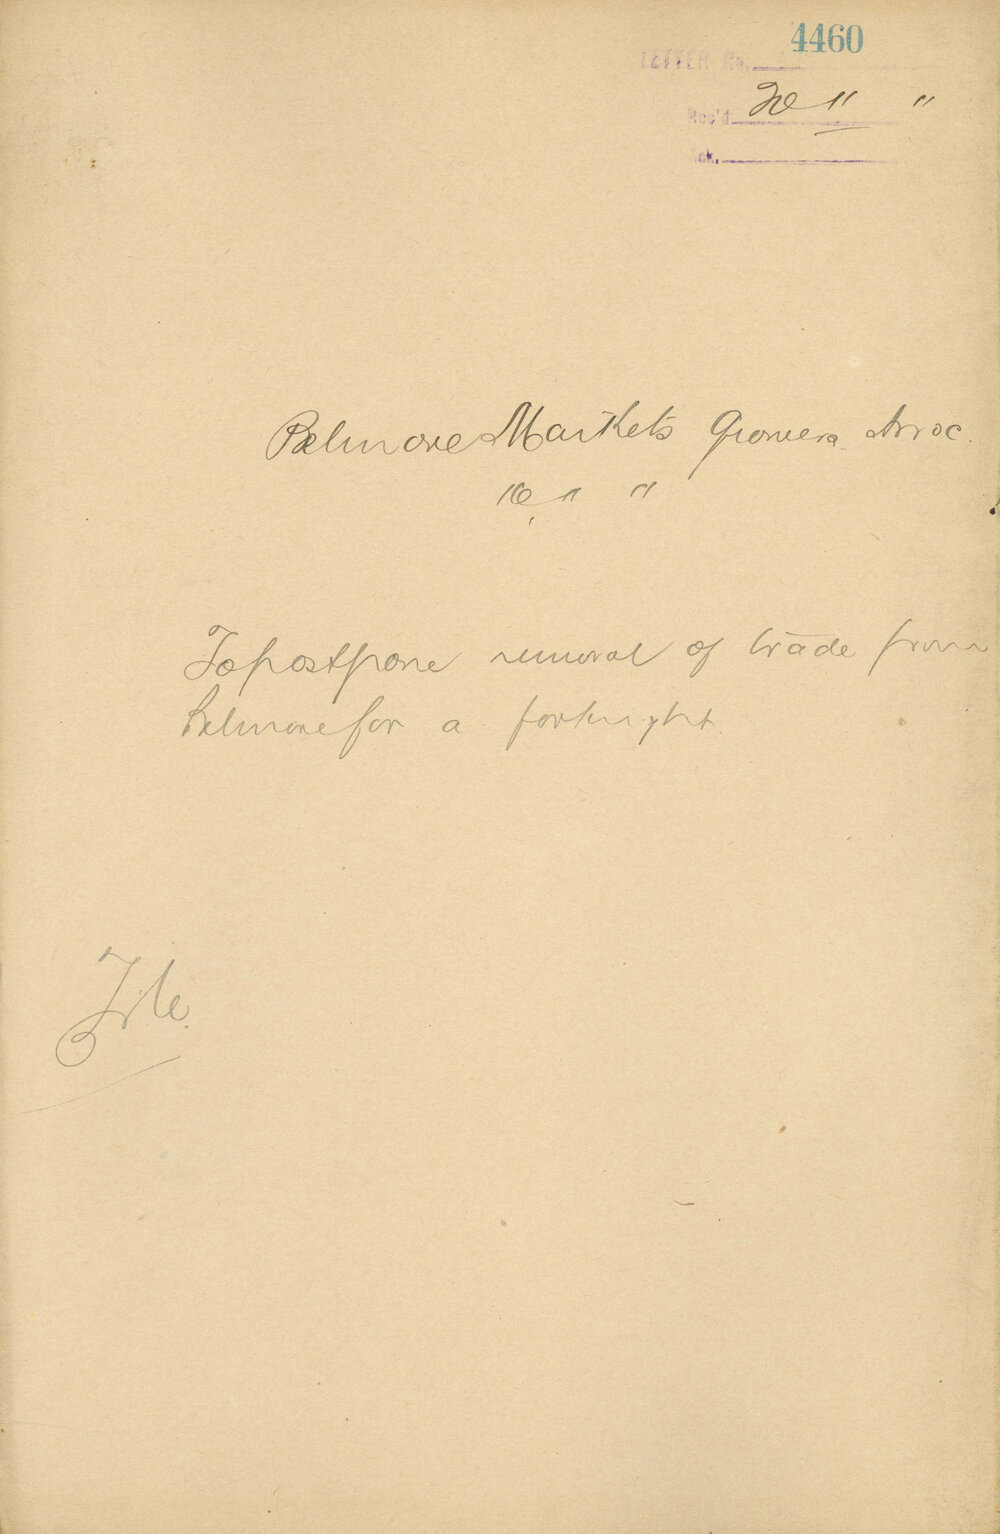 4460
LETTER No.
Rec'd 20 " "
Ack.
Belmore Markets Growers Assoc.
" "
To postpone removal of trade from
Belmore for a fortnight.
File.